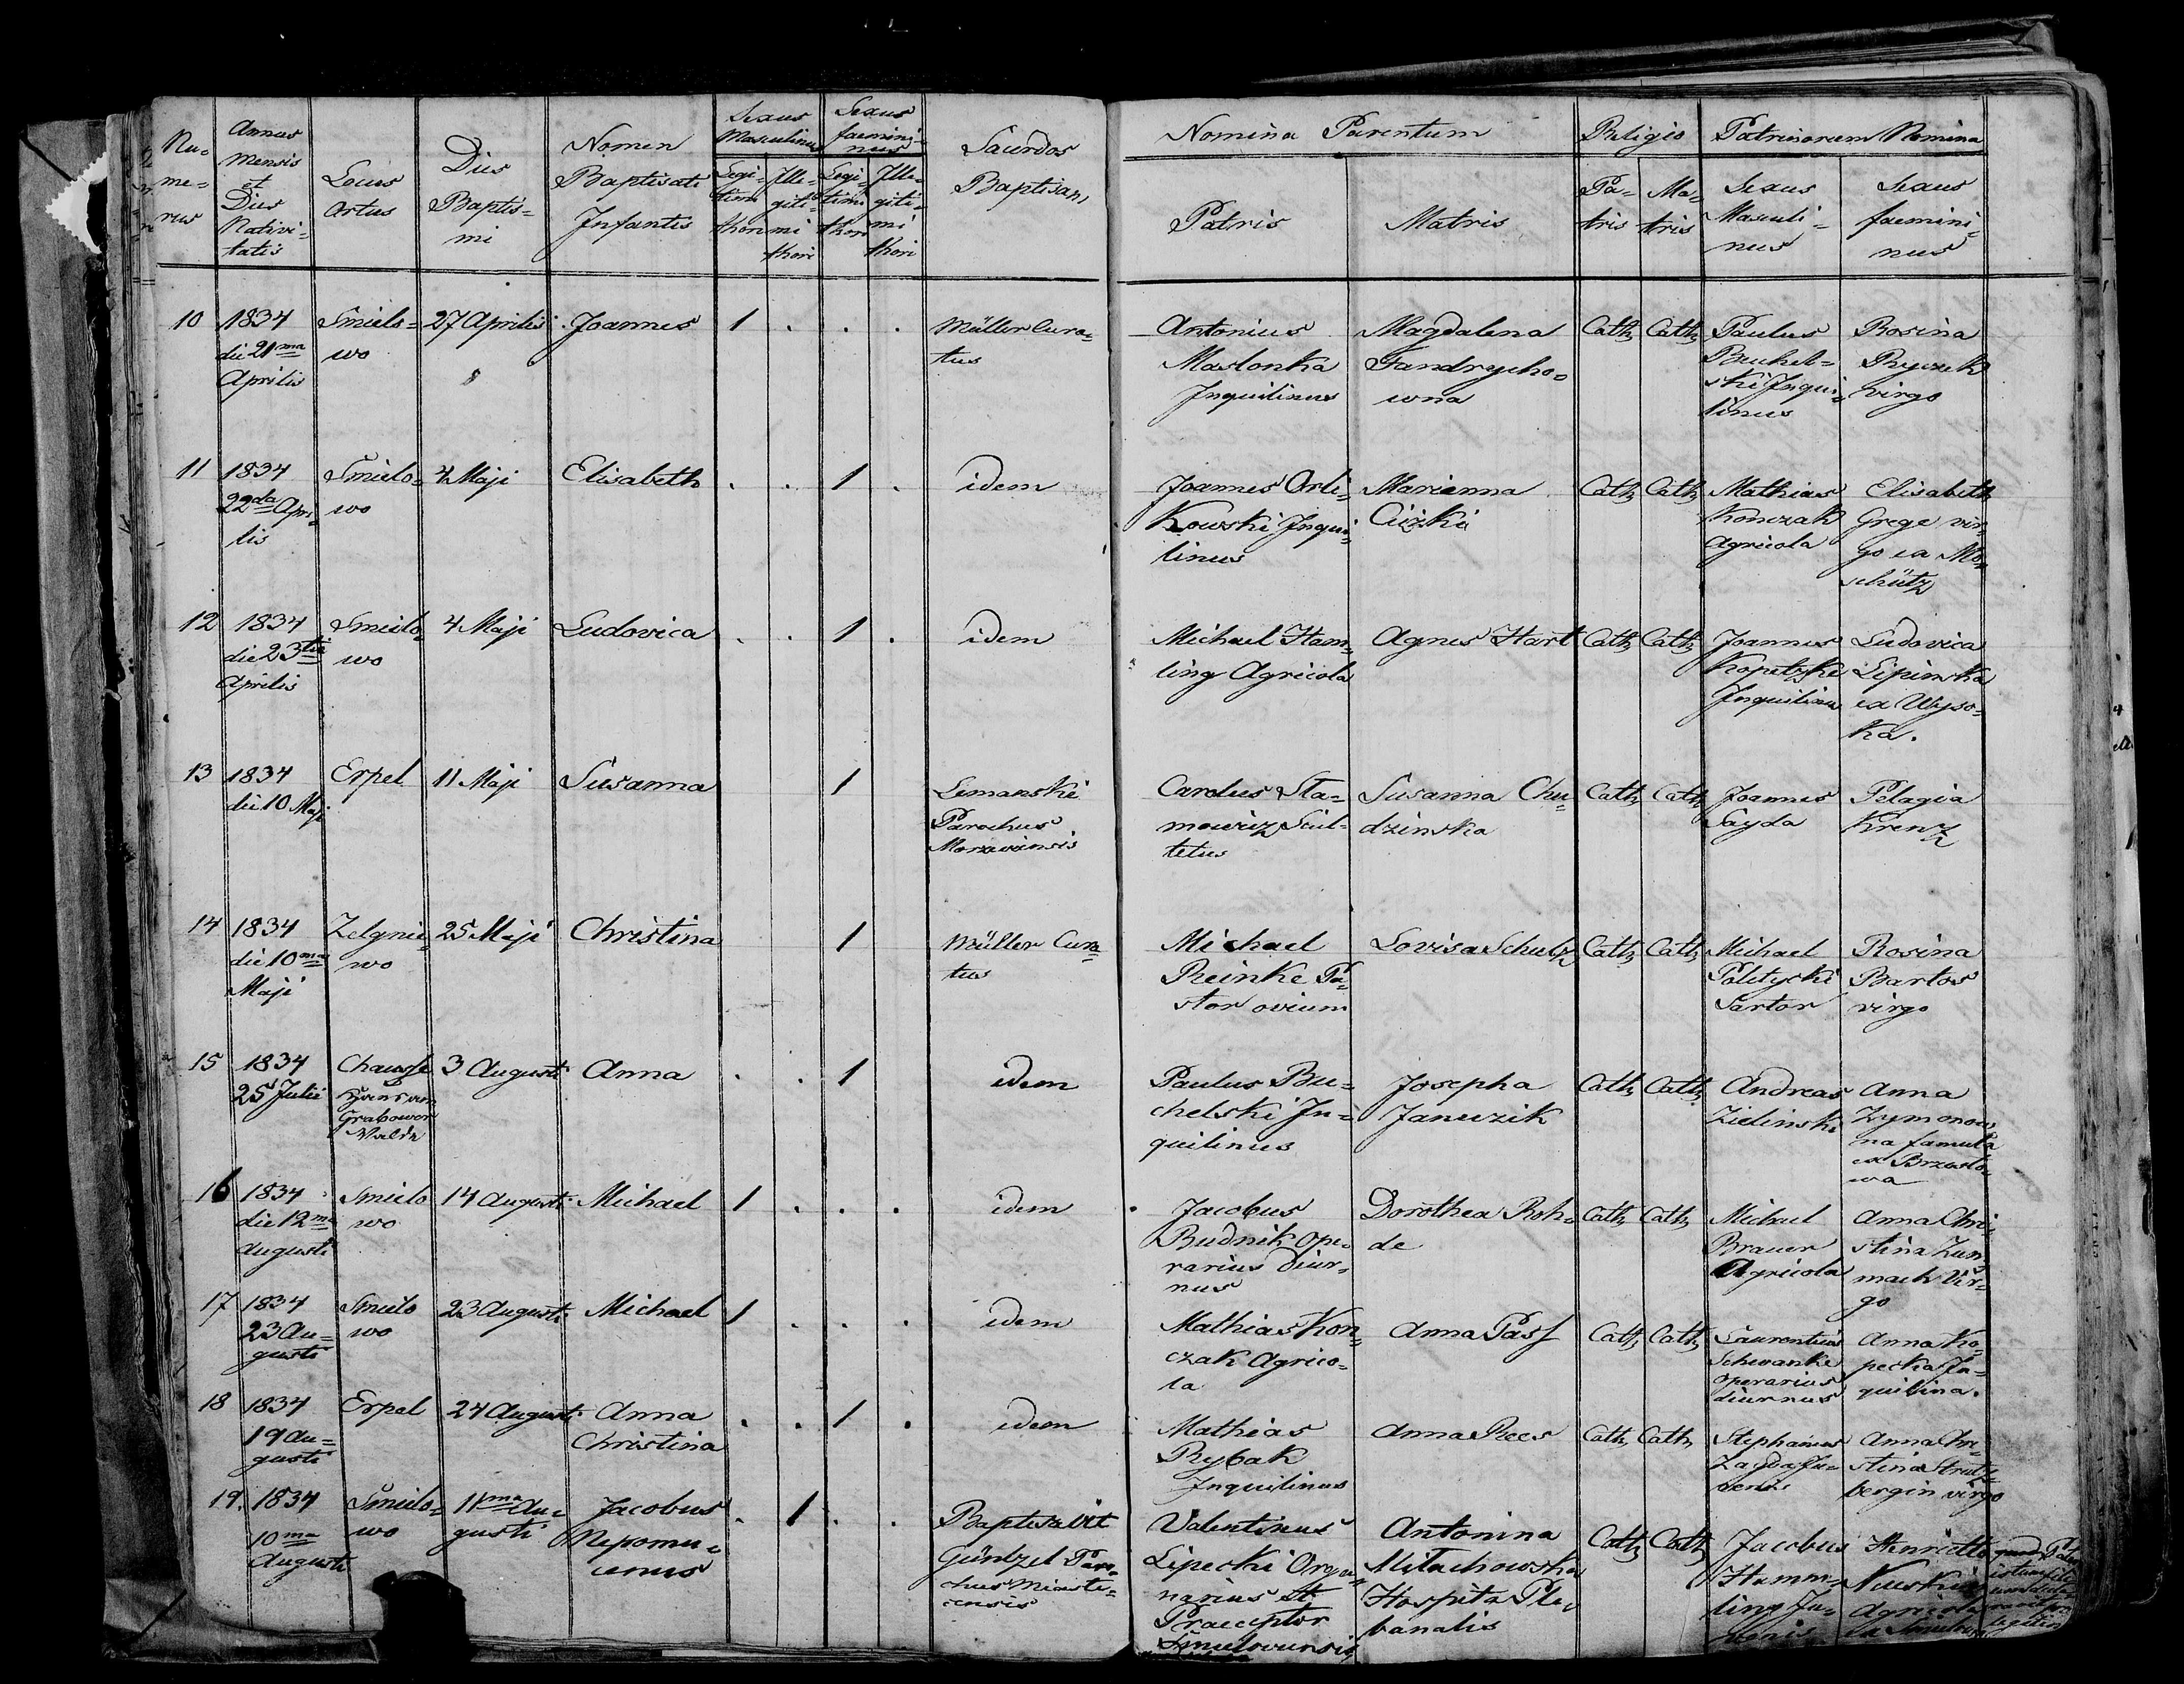 Nu-
me-
rus
Annus
Mensis
et
Dies
Nativi-
tatis
Locus
Ortus
Dies
Baptis-
mi
Nomen
Baptisati
Infantis
Sexus
Masculinus
Legi-
timi
thori
Ille-
giti-
mi
thori
Sexus
faemini-
nus
Legi-
timi
thori
Ille-
giti-
mi
thori
Sacerdos
Baptisans
Nomina Parentum
Patris
Matris
Religio
Pa-
tris
Ma-
tris
Patrinorum Nomina
Sexus
Masculi-
nus
Sexus
faemini-
nus
10
1834
die 21ma
Aprilis
Smielo=
wo
27 Aprilis
Joannes
1 . . .
Müller Cura=
tus
Antonius
Maslonka
Inquilinus
Magdalena
Fandrycho=
wna
Cath Cath
Paulus
Buchel=
ski Inqui=
linus
Rosina
Ryczek
virgo
11
1834
22da Apri
lis
Smielo=
wo
4 Maji
Elisabeth
. . 1 .
idem
Joannes Orli-
Kowski Inqui-
linus
Marianna
Cizki
Cath Cath
Mathias
Konczak
Agricola
Elisabeth
Grege vir=
go ex Mo=
schütz
12
1834
die 23tia
Aprilis
Smielo=
wo
4 Maji
Ludovica
. . 1 .
idem
Michael Ham=
ling Agricola
Agnes Hart
Cath Cath
Joannes
Kopetzke
Inquilinus
Ludovica
Lipinska
ex Wyso=
Ka.
13
1834
die 10 Maji
Erpel
11 Maji
Susanna
1
Limanski
Parochus
Morzewensis
Carolus Sta=
mowiz Scul-
tetus
Susanna Chu=
dzinska
Cath Cath
Joannes
Sayda
Pelagia
Krenz
14
1834
die 10ma
Maji
Zelgnie=
wo
25 Maji
Christina
1
Müller Cura
tus
Michael
Reinke Pa=
stor ovium
Lovisa Schulz
Cath Cath
Michael
Poletycki
Sartor
Rosina
Bartos
virgo
15
1834
25 Julii
Chausse
Grabower
Walde
3 Augusti
Anna
. . 1
idem
Paulus Bu=
chelski In=
quilinus
Josepha
Januzik
Cath Cath
Andreas
Zielinski
Anna
Zymonow
na famula
ex Brzosto=
wa
16
1834
die 12ma
Augusti
Smielo
wo
14 Augusti
Michael
1 . . .
idem
Jacobus
Budnik ope=
rarius Diur=
nus
Dorothea Roh=
de
Cath Cath
Michael
Brauer
Agricola
Anna Chri
stina Zum
mach Vir=
go
17
1834
23 Au=
gusti
Smielo
wo
23 Augusti
Michael
1 . . .
idem
Mathias Kon=
czak Agrico=
la
Anna Pass
Cath Cath
Laurentius
Schwanke
operarius
diurnus
Anna Ko=
pecka In=
quilina.
18
1834
19 Au=
gusti
Erpel
24 Augusti
Anna
Christina
. . 1 .
idem
Mathias
Rybak
Inquilinus
Anna Rees
Cath Cath
Stephanus
Zayda Ju=
venis
Anna Chri
stina Strutz
bergin virgo
19.
1834
10ma
Augusti
Smielo=
wo
11ma Au=
gusti
Jacobus
Nepomu=
cenus
. 1 . .
Baptisavit
Güntzel Paro=
chus Miaste=
censis
Valentinus
Lipecki Orga=
narius et
Praeceptor
Smielovensis
Antonina
Milachowska
Hospita Ple=
banalis
Cath Cath
Jacobus
Hamm=
ling Ju=
venis
Henrietta
Agricola